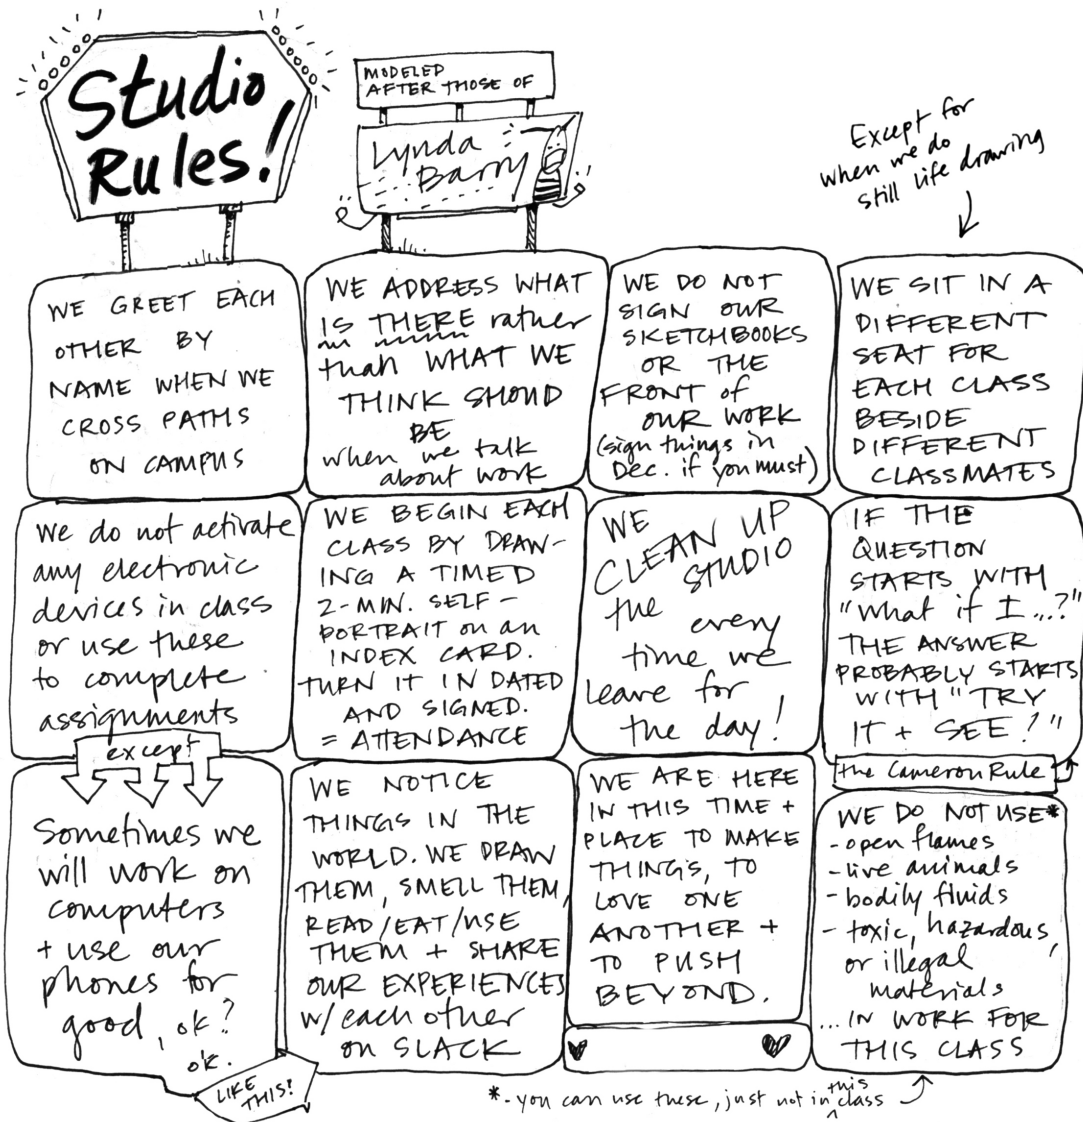 Studio
Rules!
MODELED
AFTER THOSE OF
Lynda
Barry
Except for
when we do
still life drawing
WE GREET EACH
OTHER BY
NAME WHEN WE
CROSS PATHS
ON CAMPUS
WE ADDRESS WHAT
IS THERE rather
than WHAT WE
THINK SHOUD
BE
when we talk
about work
WE DO NOT
SIGN OUR
SKETCHBOOKS
OR THE
FRONT of
OUR WORK
(sign things in
Dec. if you must)
WE SIT IN A
DIFFERENT
SEAT FOR
EACH CLASS
BESIDE
DIFFERENT
CLASSMATES
We do not activate
any electronic
devices in class
or use these
to complete
assignments
except
WE BEGIN EACH
CLASS BY DRAW-
ING A TIMED
2-MIN. SELF-
PORTRAIT on an
INDEX CARD.
TURN IT IN DATED
AND SIGNED.
= ATTENDANCE
WE
CLEAN UP
the STUDIO
every
time we
leave for
the day!
IF THE
QUESTION
STARTS WITH
"What if I...?"
THE ANSWER
PROBABLY STARTS
WITH "TRY
IT + SEE!"
the Cameron Rule
Sometimes we
will work on
computers
+ use our
phones for
good, ok?
ok.
LIKE
THIS!
WE NOTICE
THINGS IN THE
WORLD. WE DRAW
THEM, SMELL THEM,
READ/EAT/USE
THEM + SHARE
OUR EXPERIENCES
w/each other
on SLACK
WE ARE HERE
IN THIS TIME +
PLACE TO MAKE
THINGS, TO
LOVE ONE
ANOTHER +
TO PUSH
BEYOND.
WE DO NOT USE*
- open flames
- live animals
- bodily fluids
- toxic, hazardous,
or illegal
materials
...IN WORK FOR
THIS CLASS
*- you can use these, just not in this class